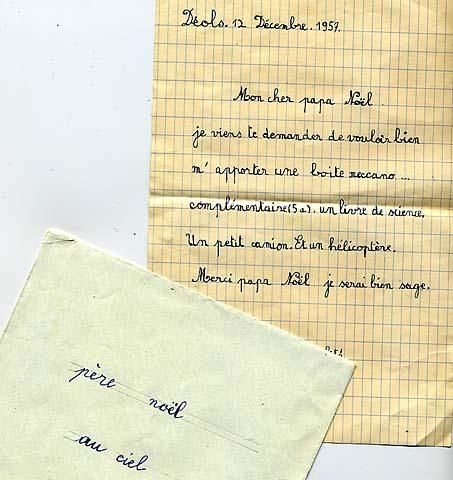 Déols. 12 Décembre. 1957.
Mon cher papa Noël.
je viens te demander de vouloir bien
m'apporter une boite meccano ...
complémentaire (5a). un livre de science.
Un petit camion. Et un hélicoptère.
Merci papa Noël je serai bien sage.
père noël
au ciel